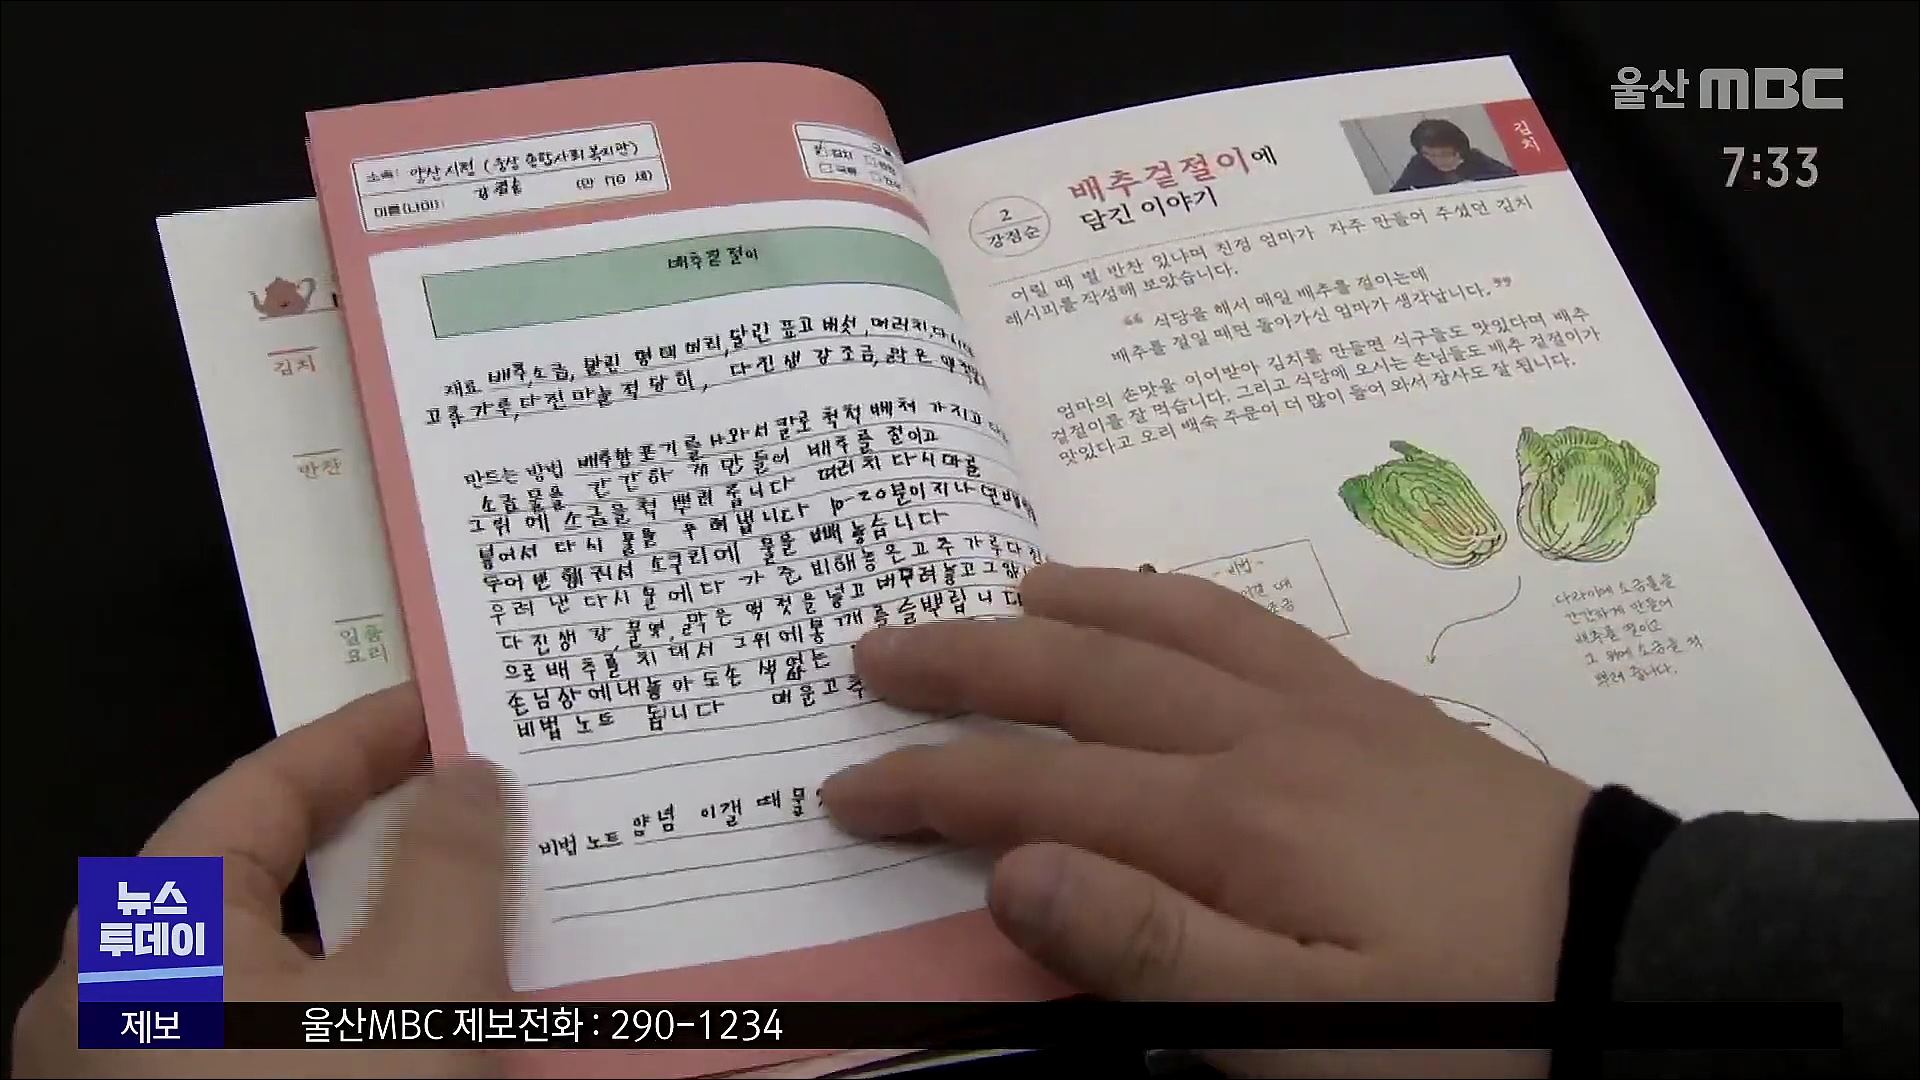 울산MBC
7:33
소속: 양산시점 (웅상종합사회복지관)
이름(나이): (만 70 세)
김치
국류
배추겉절이
재료 배추,소금, 말린 명태머리,달린 표고버섯,며러치,다시
고춧가루,다진마늘 적당히, 다진생강조금,맑은액젓
만드는 방법 배추한포기를 사와서 칼로 척척 베쳐 가지고
소금물을 간간하게 만들어 배추를 절이고
그위에 소금을 척 뿌려 줍니다 며러치 다시마를
넣어서 다시 물을 우려냅니다 10-20분이지나면
두어번 헹궈서 소쿠리에 물을 빼놓습니다
우려낸 다시물에다가 준비해놓은고추가루다진
다진생강,물엿,맑은액젓을넣고 버무려놓고그
으로배추를 치대서 그위에
손님상에내놓아도손색없는
비법노트 됩니다 매운고추
비법 노트 양념 이갤 때 물
김치
반찬
일품
요리
김치
2
강점순
배추겉절이에
담긴 이야기
어릴 때 별 반찬 있냐며 친정 엄마가 자주 만들어 주셨던 김치
레시피를 작성해 보았습니다.
“ 식당을 해서 매일 배추를 절이는데
배추를 절일 때면 돌아가신 엄마가 생각납니다. ”
엄마의 손맛을 이어받아 김치를 만들면 식구들도 맛있다며 배추
겉절이를 잘 먹습니다. 그리고 식당에 오시는 손님들도 배추 겉절이가
맛있다고 오리 백숙 주문이 더 많이 들어 와서 장사도 잘 됩니다.
- 비법 -
다라이에 소금물을
간간하게 만들어
배추를 절이고
그 위에 소금을 척
뿌려 줍니다.
뉴스
투데이
제보
울산MBC 제보전화 : 290-1234